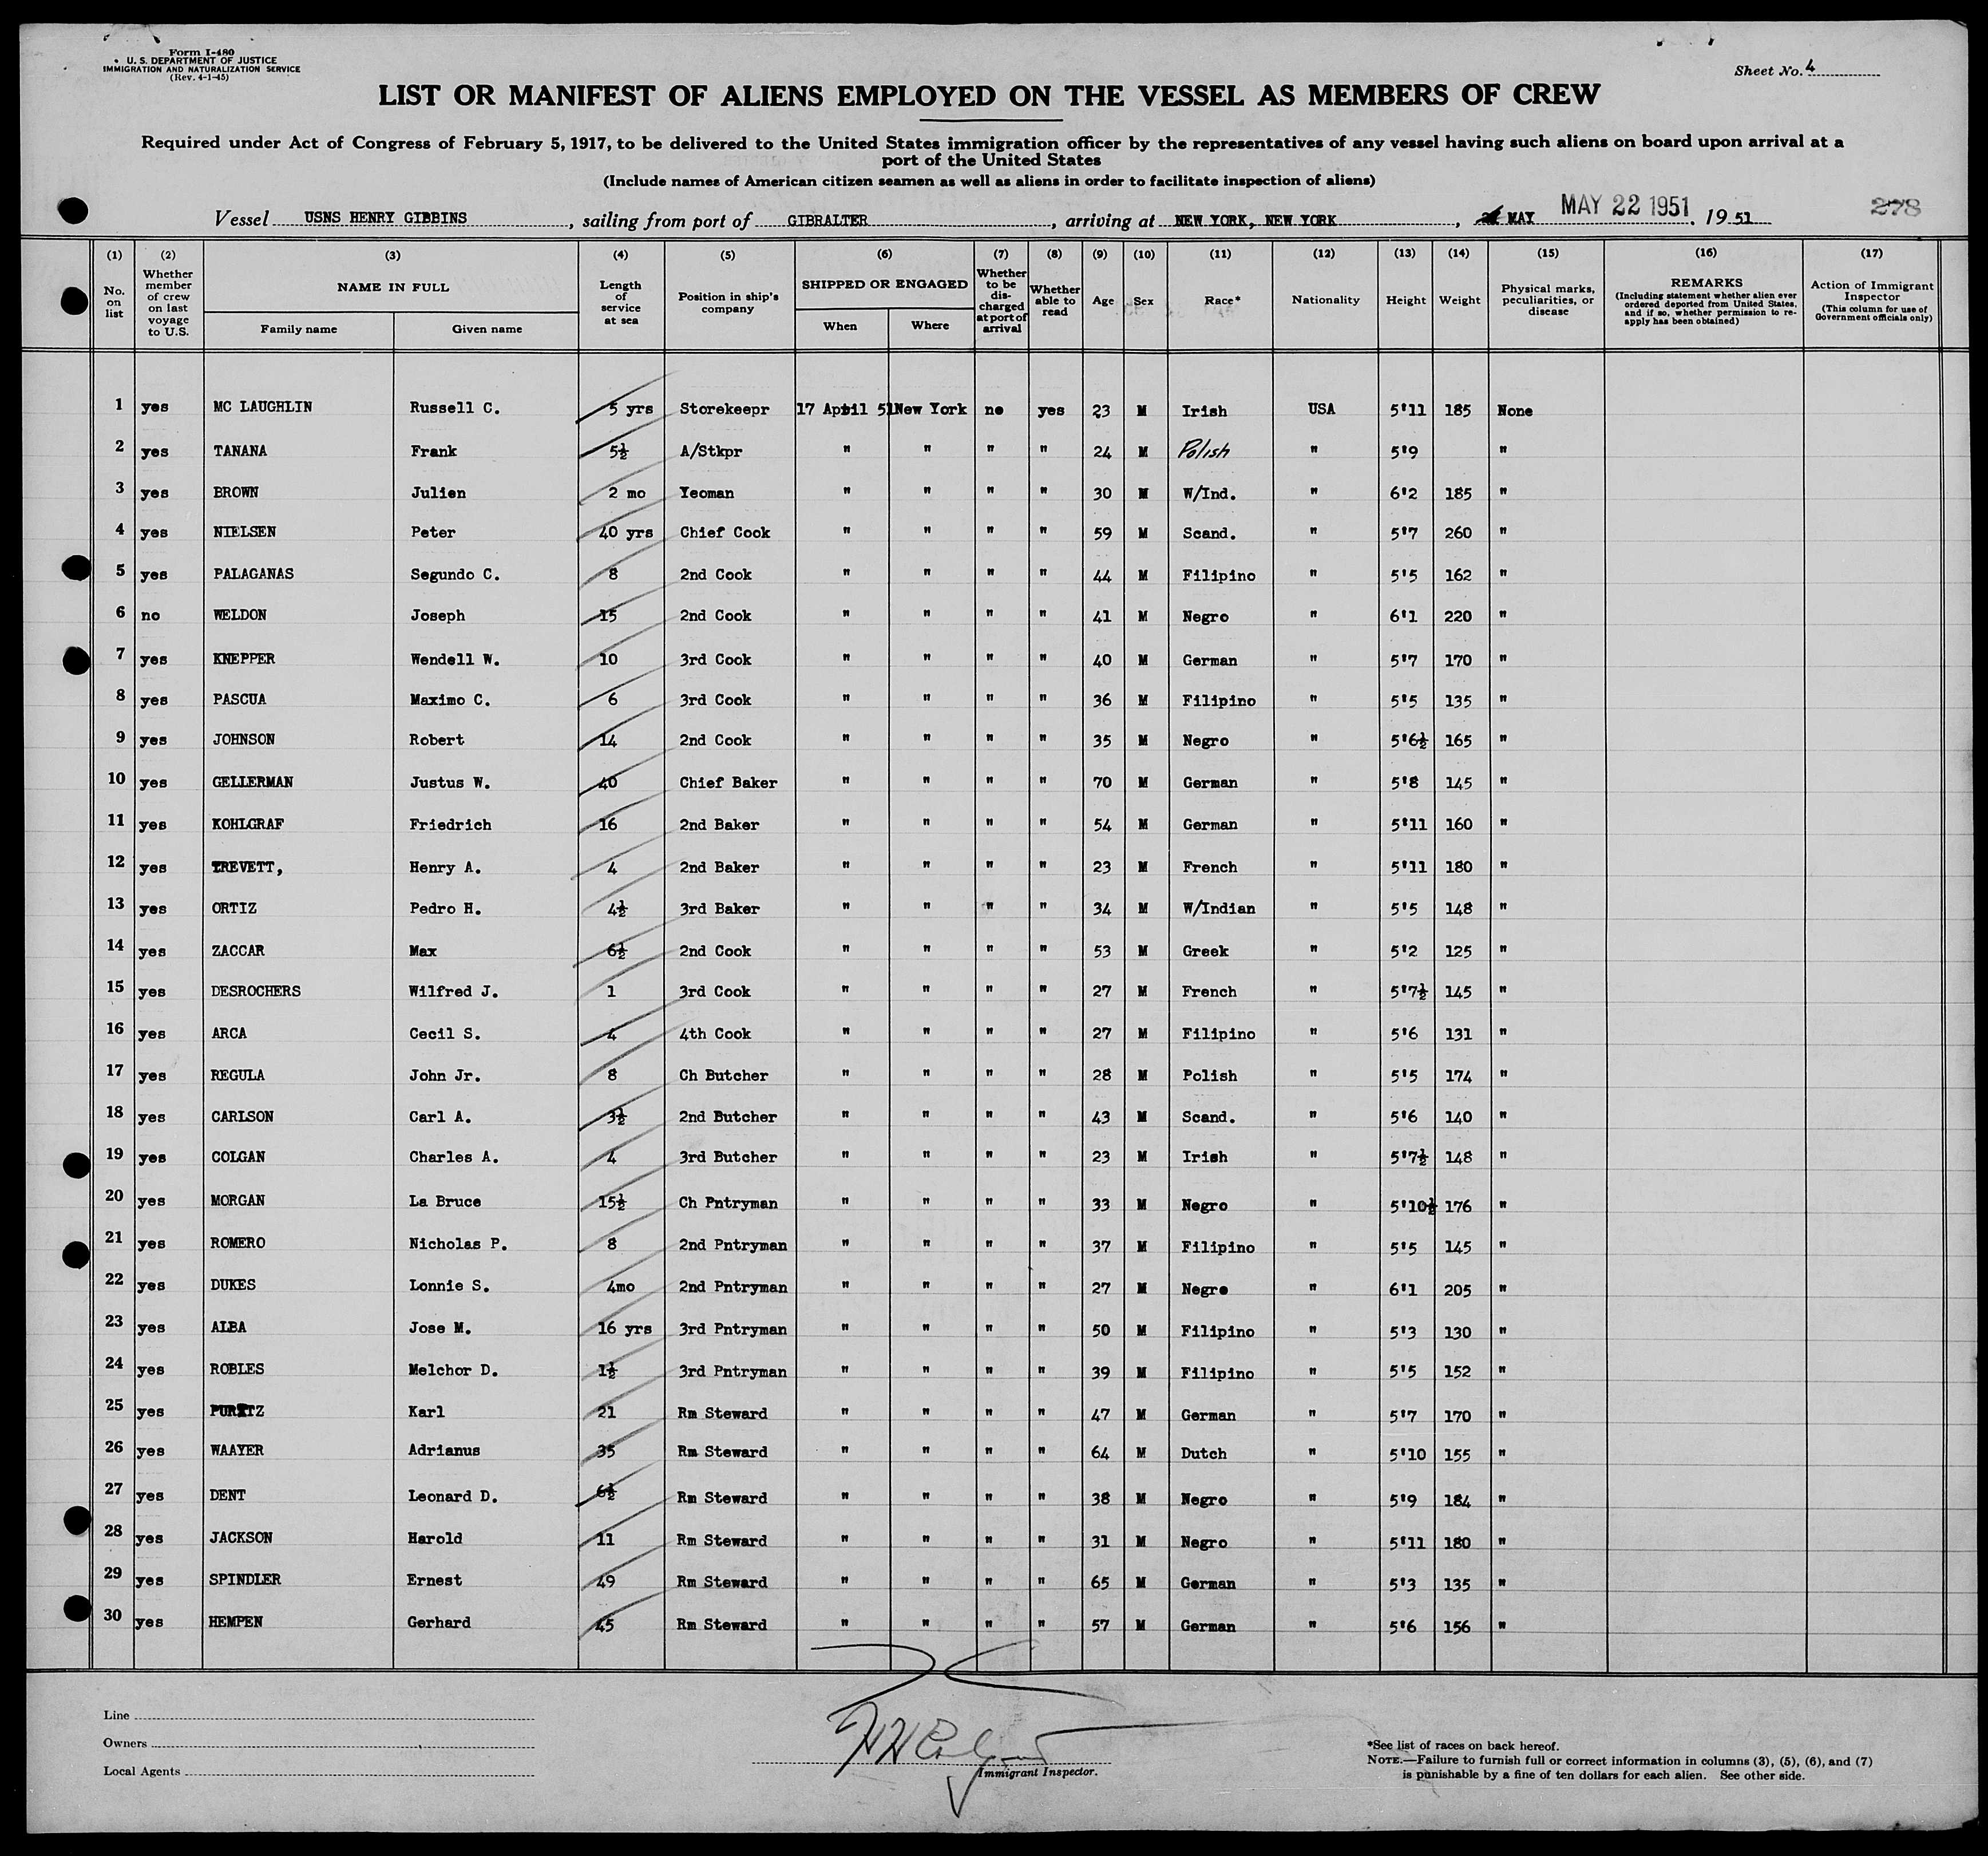 Form I-480
U. S. DEPARTMENT OF JUSTICE
IMMIGRATION AND NATURALIZATION SERVICE
(Rev. 4-1-45)
Sheet No. 4
LIST OR MANIFEST OF ALIENS EMPLOYED ON THE VESSEL AS MEMBERS OF CREW
Required under Act of Congress of February 5, 1917, to be delivered to the United States immigration officer by the representatives of any vessel having such aliens on board upon arrival at a
port of the United States
(Include names of American citizen seamen as well as aliens in order to facilitate inspection of aliens)
Vessel USNS HENRY GIBBINS, sailing from port of GIBRALTER, arriving at NEW YORK, NEW YORK, MAY MAY 22 1951, 1951 278
(1) (2) (3) (4) (5) (6) (7) (8) (9) (10) (11) (12) (13) (14) (15) (16) (17)
No. on list
Whether member of crew on last voyage to U.S.
NAME IN FULL
Family name Given name
Length of service at sea
Position in ship's company
SHIPPED OR ENGAGED
When Where
Whether to be discharged at port of arrival
Whether able to read
Age
Sex
Race*
Nationality
Height
Weight
Physical marks, peculiarities, or disease
REMARKS
(Including statement whether alien ever ordered deported from United States, and if so, whether permission to re-apply has been obtained)
Action of Immigrant Inspector
(This column for use of Government officials only)
1 yes MC LAUGHLIN Russell C. 5 yrs Storekeepr 17 April 51 New York no yes 23 M Irish USA 5'11 185 None
2 yes TANANA Frank 5½ A/Stkpr " " " " 24 M Polish " 5'9 "
3 yes BROWN Julien 2 mo Yeoman " " " " 30 M W/Ind. " 6'2 185 "
4 yes NIELSEN Peter 40 yrs Chief Cook " " " " 59 M Scand. " 5'7 260 "
5 yes PALAGANAS Segundo C. 8 2nd Cook " " " " 44 M Filipino " 5'5 162 "
6 no WELDON Joseph 15 2nd Cook " " " " 41 M Negro " 6'1 220 "
7 yes KNEPPER Wendell W. 10 3rd Cook " " " " 40 M German " 5'7 170 "
8 yes PASCUA Maximo C. 6 3rd Cook " " " " 36 M Filipino " 5'5 135 "
9 yes JOHNSON Robert 14 2nd Cook " " " " 35 M Negro " 5'6½ 165 "
10 yes GELLERMAN Justus W. 40 Chief Baker " " " " 70 M German " 5'8 145 "
11 yes KOHLGRAF Friedrich 16 2nd Baker " " " " 54 M German " 5'11 160 "
12 yes TREVETT, Henry A. 4 2nd Baker " " " " 23 M French " 5'11 180 "
13 yes ORTIZ Pedro H. 4½ 3rd Baker " " " " 34 M W/Indian " 5'5 148 "
14 yes ZACCAR Max 6½ 2nd Cook " " " " 53 M Greek " 5'2 125 "
15 yes DESROCHERS Wilfred J. 1 3rd Cook " " " " 27 M French " 5'7½ 145 "
16 yes ARCA Cecil S. 4 4th Cook " " " " 27 M Filipino " 5'6 131 "
17 yes REGULA John Jr. 8 Ch Butcher " " " " 28 M Polish " 5'5 174 "
18 yes CARLSON Carl A. 3½ 2nd Butcher " " " " 43 M Scand. " 5'6 140 "
19 yes COLGAN Charles A. 4 3rd Butcher " " " " 23 M Irish " 5'7½ 148 "
20 yes MORGAN La Bruce 15½ Ch Pntryman " " " " 33 M Negro " 5'10½ 176 "
21 yes ROMERO Nicholas P. 8 2nd Pntryman " " " " 37 M Filipino " 5'5 145 "
22 yes DUKES Lonnie S. 4mo 2nd Pntryman " " " " 27 M Negro " 6'1 205 "
23 yes ALBA Jose M. 16 yrs 3rd Pntryman " " " " 50 M Filipino " 5'3 130 "
24 yes ROBLES Melchor D. 1½ 3rd Pntryman " " " " 39 M Filipino " 5'5 152 "
25 yes Karl 21 Rm Steward " " " " 47 M German " 5'7 170 "
26 yes WAAYER Adrianus 35 Rm Steward " " " " 64 M Dutch " 5'10 155 "
27 yes DENT Leonard D. 6½ Rm Steward " " " " 38 M Negro " 5'9 184 "
28 yes JACKSON Harold 11 Rm Steward " " " " 31 M Negro " 5'11 180 "
29 yes SPINDLER Ernest 49 Rm Steward " " " " 65 M German " 5'3 135 "
30 yes HEMPEN Gerhard 45 Rm Steward " " " " 57 M German " 5'6 156 "
Line
Owners
Local Agents
Immigrant Inspector.
*See list of races on back hereof.
NOTE.—Failure to furnish full or correct information in columns (3), (5), (6), and (7)
is punishable by a fine of ten dollars for each alien. See other side.